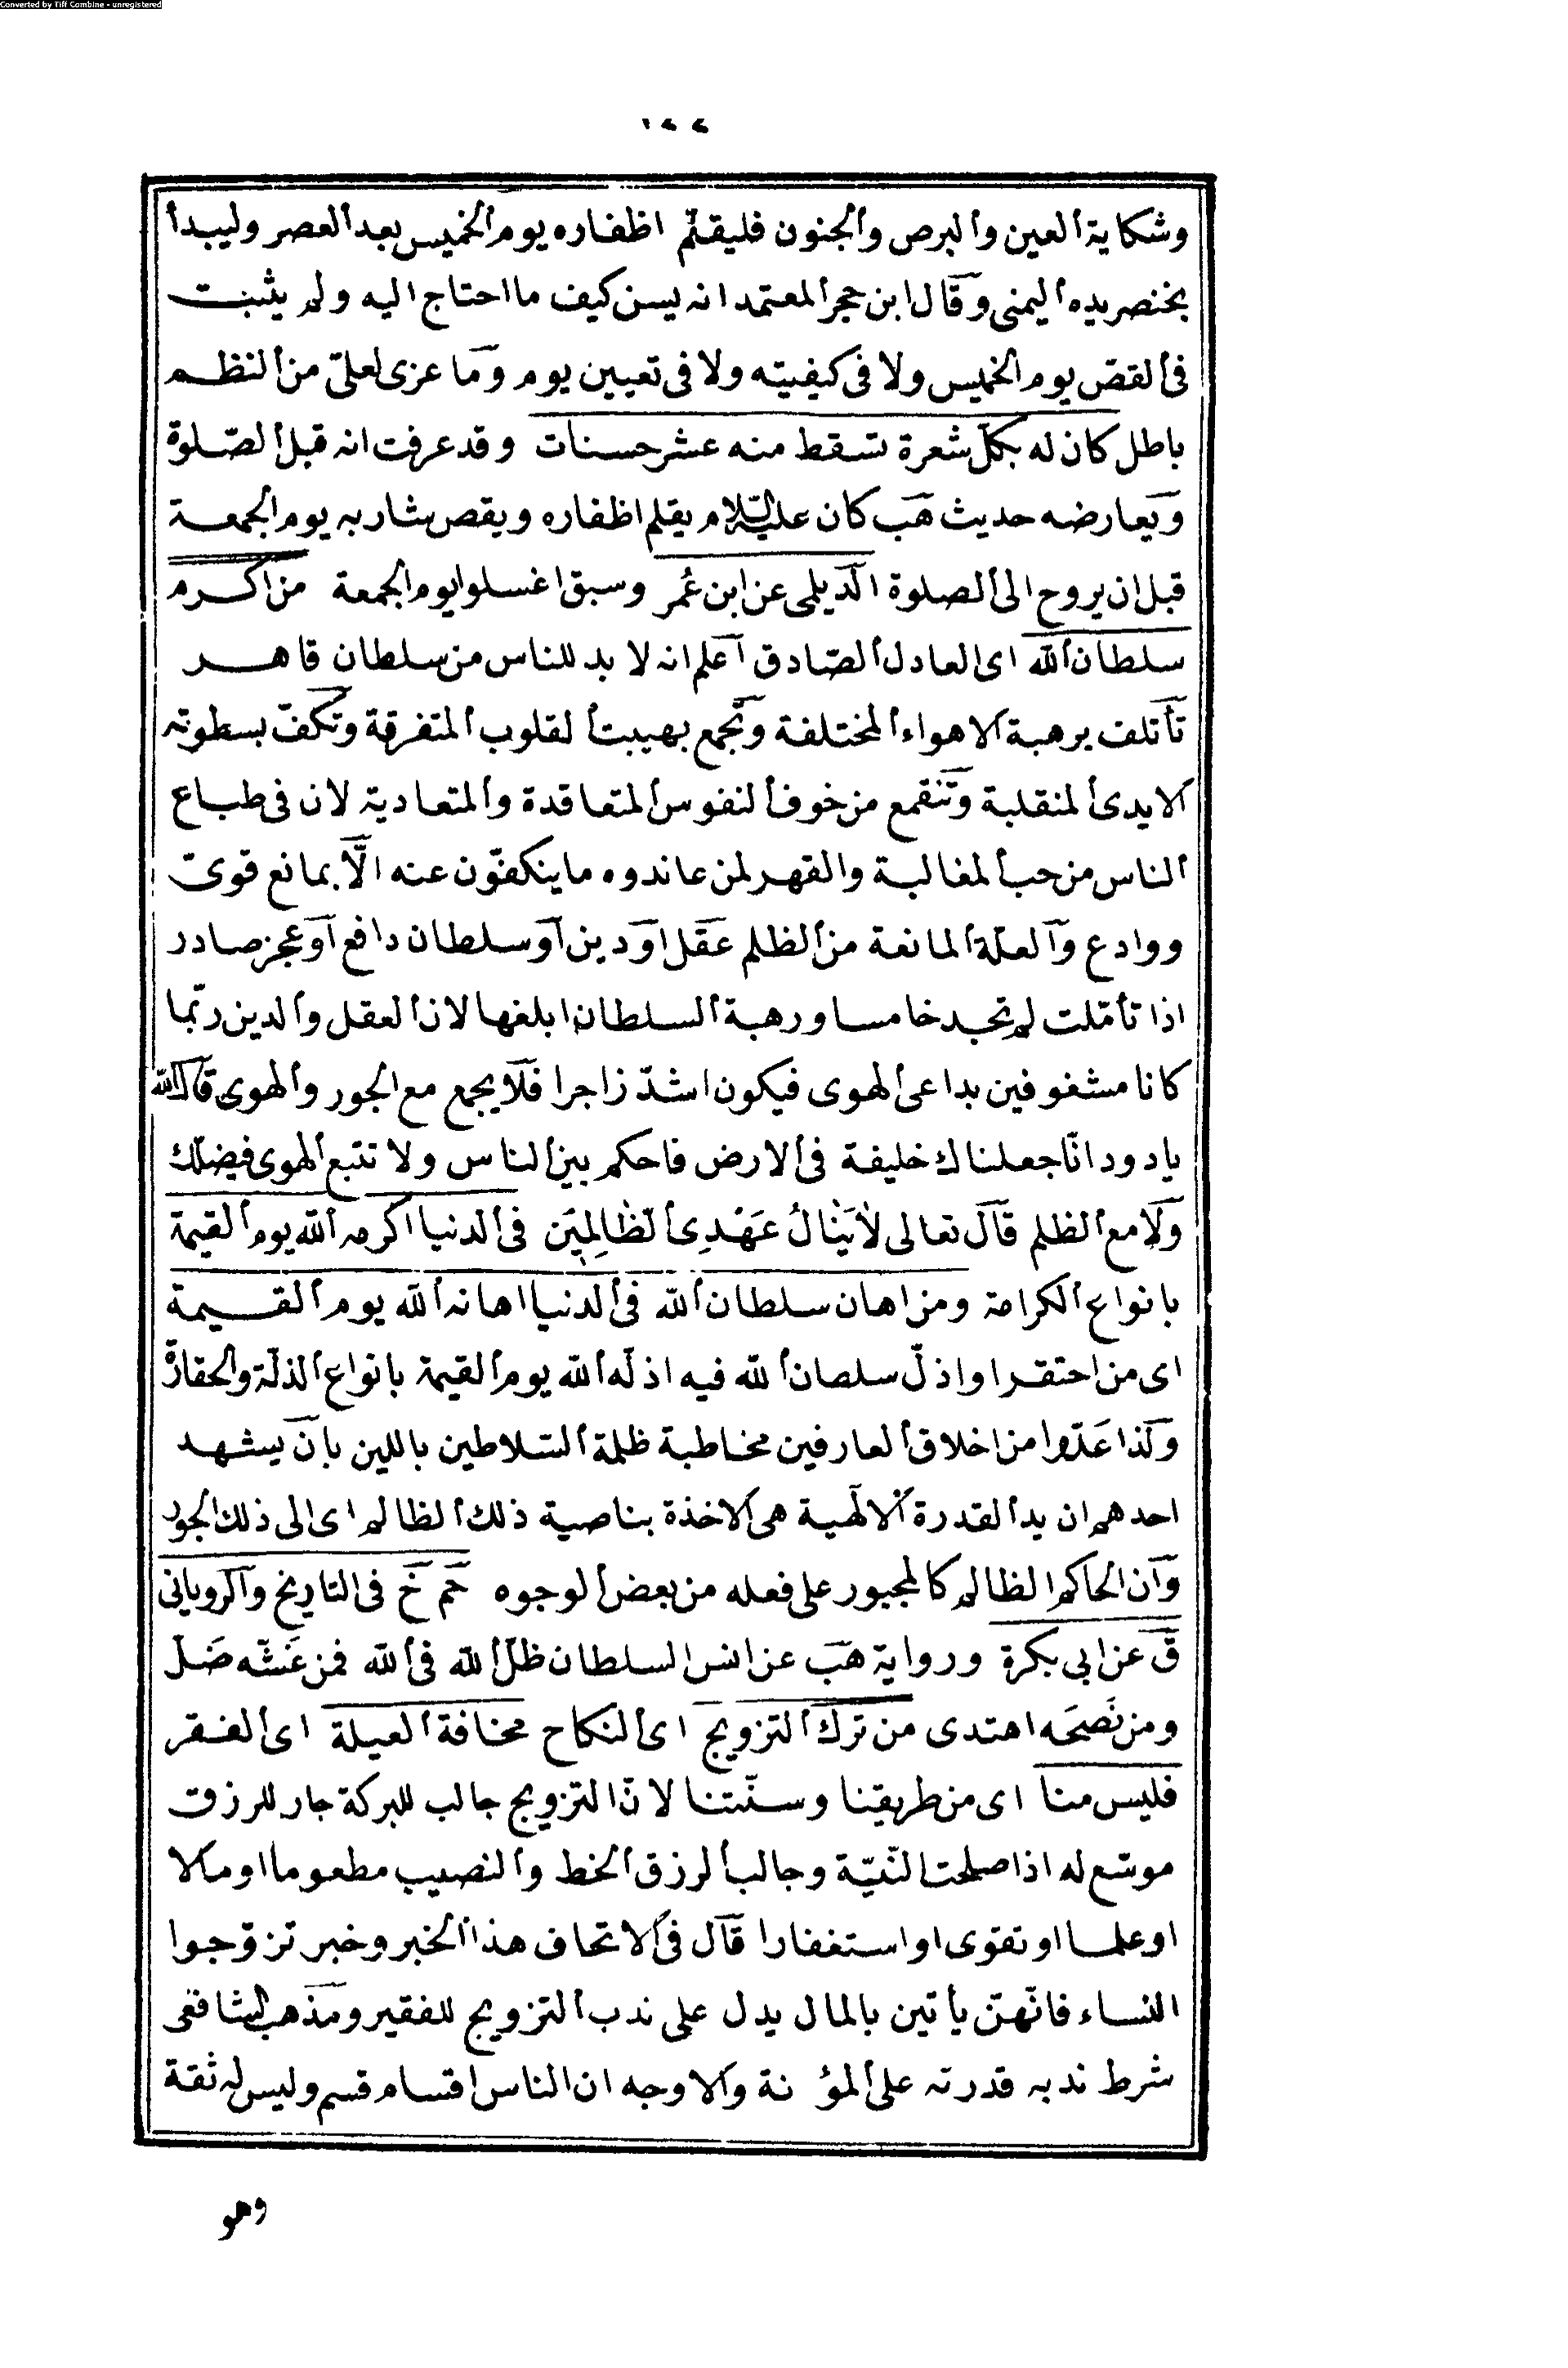 Converted by Tiff Combine - unregistered
وشكاية العين والبرص والجنون فليقلم اظفاره يوم الخميس بعد العصر وليبدأ
بخنصر يده اليمنى وقال ابن حجر المعتمد انه يسن كيف ما احتاج اليه ولم يثبت
فى القص يوم الخميس ولا فى كيفيته ولا فى تعيين يوم وما عزى لعلىّ من النظم
باطل كان له بكل شعرة تسقط منه عشر حسنات وقد عرفت انه قبل الصّلوة
ويعارضه حديث هب كان عليه السّلام يقلم اظفاره ويقص شاربه يوم الجمعة
قبل ان يروح الى الصلوة الديلمى عن ابن عُمر وسبق اغسلوا يوم الجمعة من اكرم
سلطان الله اى العادل الصّادق اعلم انه لا بد للناس من سلطان قاهر
تأتلف برهبة الاهواء المختلفة وتجمع بهيبت القلوب المتفرقة وتكفّ بسطوته
الايدى المنقلبة وتنقمع من خوف النفوس المتعاقدة والمتعادية لان فى طباع
الناس من حب المغالبة والقهر لمن عاندوه ما ينكفّون عنه الّا بمانع قوىّ
ووادع والعلّة المانعة من الظلم عقل او دين او سلطان دافع او عجز صادر
اذا تأمّلت لم تجد خامسا ورهبة السلطان ابلغها لان العقل والدين ربّما
كانا مشغوفين بداعى الهوى فيكون اشدّ زاجرا فلا يجمع مع الجور والهوى قال الله
يا دود انّا جعلناك خليفة فى الارض فاحكم بين الناس ولا تتبع الهوى فيضلك
ولا مع الظلم قال تعالى لَا يَنَالُ عَهْدِى الظَّالِمِينَ فى الدنيا اكرمه الله يوم القيمة
بانواع الكرامة ومن اهان سلطان الله فى الدنيا اهانه الله يوم القيمة
اى من احتقر او اذلّ سلصان الله فيه اذلّه الله يوم القيمة بانواع الذلّة والحقارة
وكذا عَدّوا من اخلاق العارفين مخاطبة ظلمة السّلاطين باللين بان يشهد
احدهم ان يد القدرة الالهية هى الاخذة بناصية ذلك الظالم اى الى ذلك الجور
وان الحاكم الظالم كالمجبور على فعله من بعض الوجوه حم خ فى التاريخ والرويانى
ق عن ابى بكرة ورواية هب عن انس السلطان ظلّ الله فى الله فمن غشّه ضَلّ
ومن نَصحَه اهتدى من ترك التزويج اى النكاح مخافة العيلة اى الفقر
فليس منا اى من طريقنا وسنّتنا لانّ التزويج جالب للبركة جار للرزق
موسّع له اذا صلحت النّيّة وجالب الرزق الخط والنصيب مطعوما او مالا
او علما او تقوى او استغفارا قال فى الاتحاف هذا الخبر وخبر تزوّجوا
النساء فانّهنّ يأتين بالمال يدل على ندب التزويج للفقير ومذهب الشافعى
شرط ندبه قدرته على المؤنة والاوجه ان الناس اقسام قسم وليس له ثقة
وهو